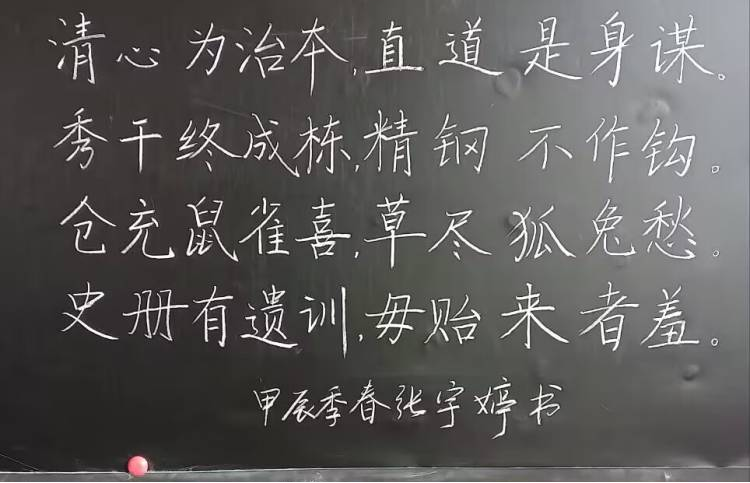 清心为治本,直道是身谋。
秀干终成栋,精钢不作钩。
仓充鼠雀喜,草尽狐兔愁。
史册有遗训,毋贻来者羞。
甲辰季春张宇婷书